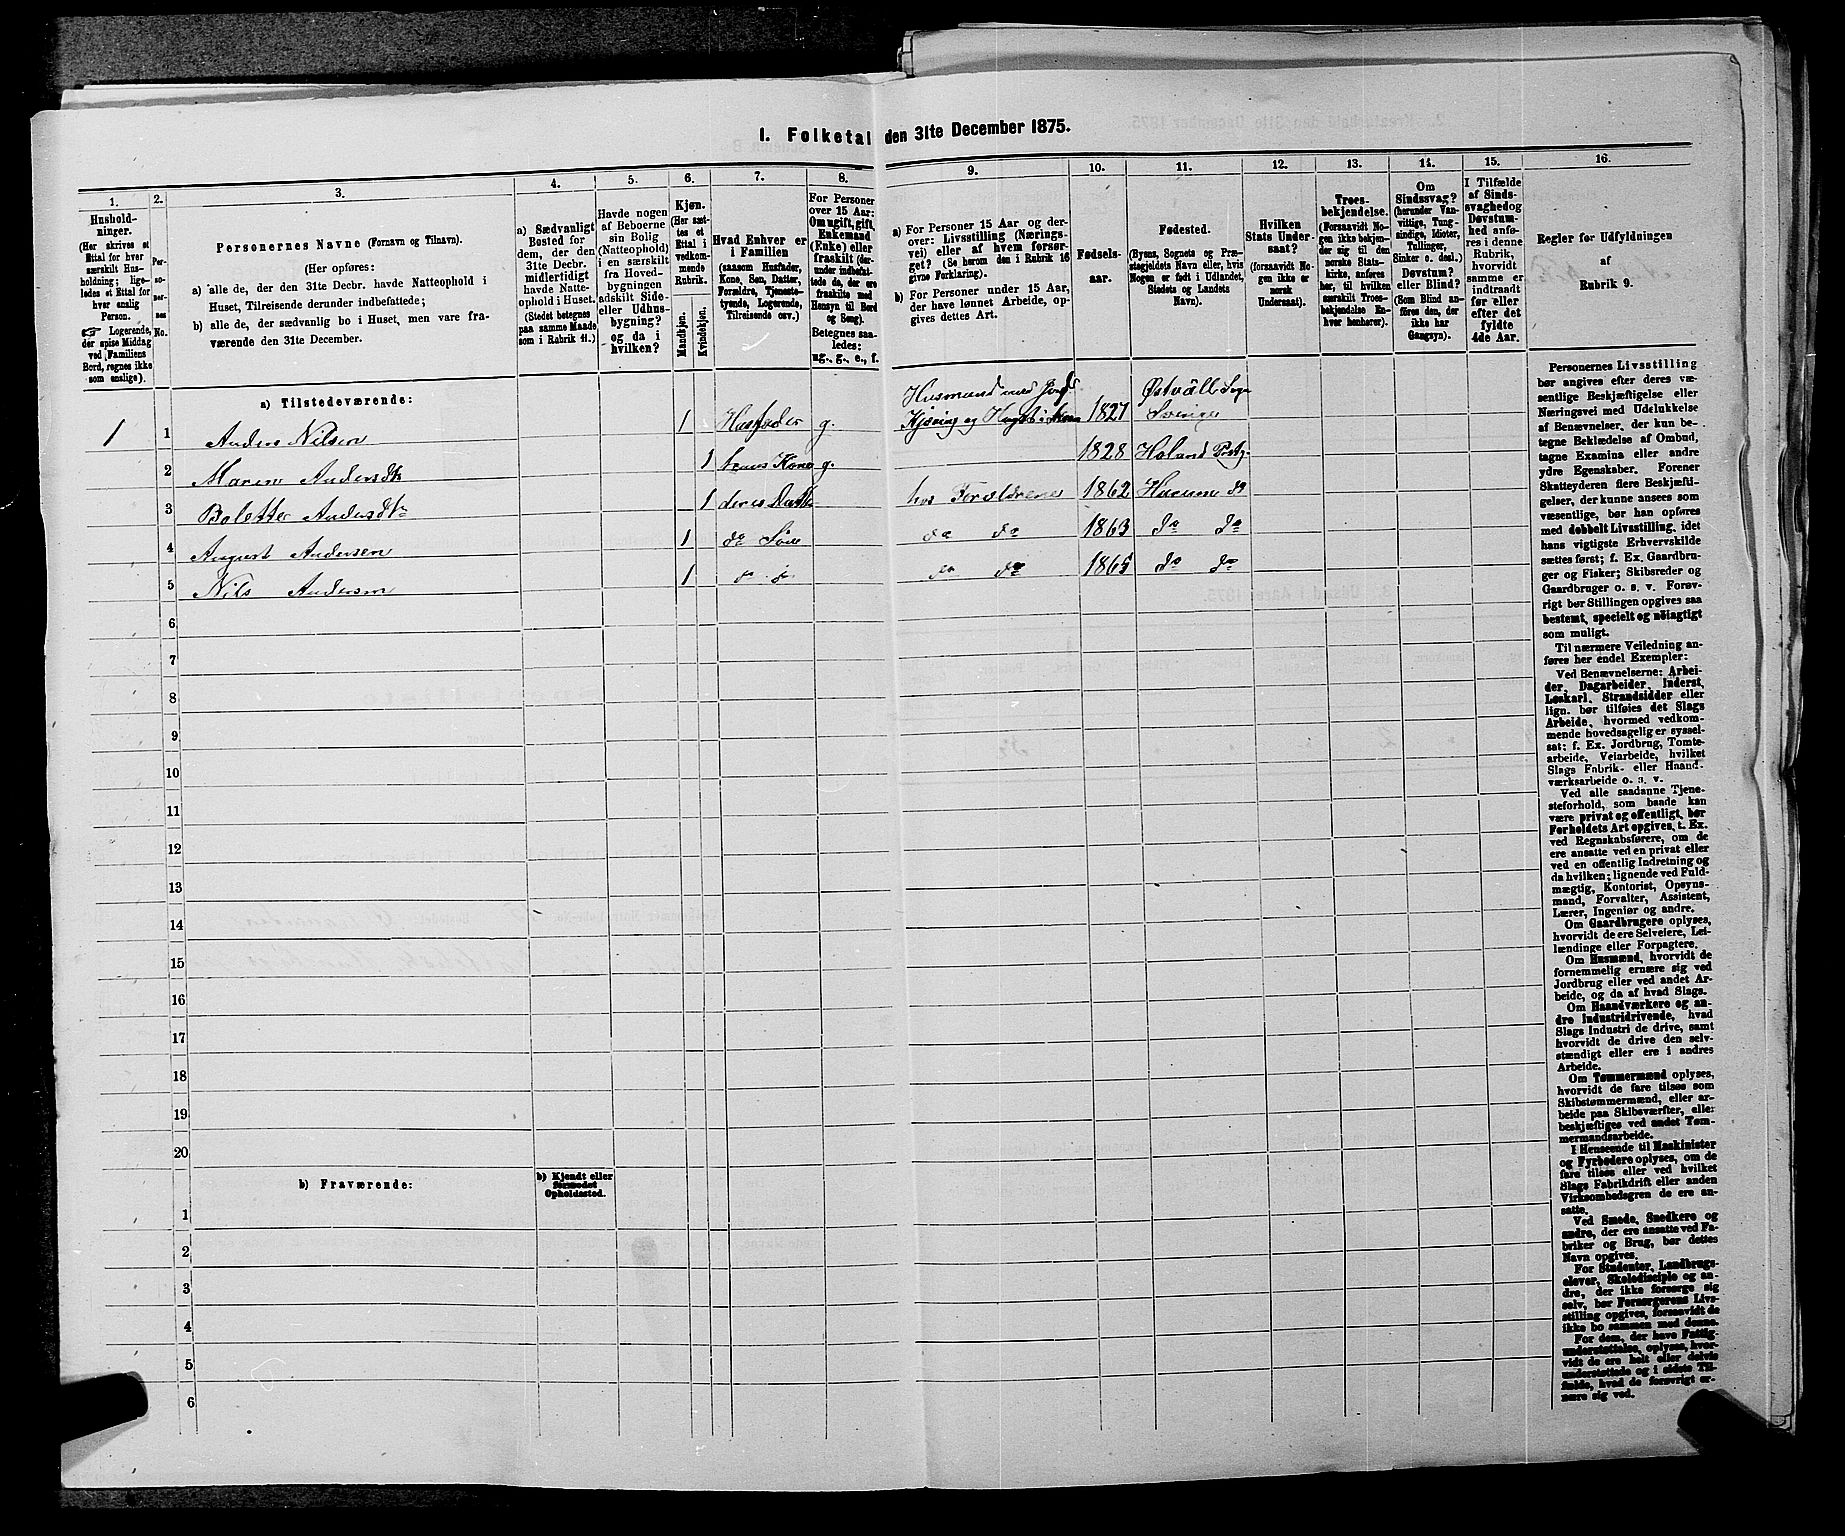 I. Folketal den 31te December 1875.
1.
2.
3.
4.
5.
6.
7.
8.
9.
10.
11.
12.
13.
14.
15.
16.
Hushold-
ninger.
(Her skrives et
Ettal for hver
særskilt Hus-
holdning; lige-
ledes et Ettal for
hver enslig
Person.
☞ Logerende,
der spise Middag
ved Familiens
Bord, regnes ikke
som enslige).
Per-
so-
ner-
nes
No.
Personernes Navne (Fornavn og Tilnavn).
(Her opføres:
a) alle de, der den 31te Decbr. havde Natteophold i
Huset, Tilreisende derunder indbefattede;
b) alle de, der sædvanlig bo i Huset, men vare fra-
værende den 31te December.
a) Sædvanligt
Bosted for
dem, der den
31te Decbr.
midlertidigt
havde Natte-
ophold i Huset.
(Stedet betegnes
paa samme Maade
som i Rubrik 11.)
Havde nogen
af Beboerne
sin Bolig
(Natteophold)
i en særskilt
fra Hoved-
bygningen
adskilt Side-
eller Udhus-
bygning?
og da i
hvilken?
Kjøn.
(Her sæt-
tes et
Ettal i
vedkom-
mende
Rubrik.
Mandkjøn.
Kvindekjøn.
Hvad Enhver er
i Familien
(saasom Husfader,
Kone, Søn, Datter,
Forældre, Tjeneste-
tyende, Logerende,
Tilreisende osv.)
For Personer
over 15 Aar:
Om ugift, gift,
Enkemand
(Enke) eller
fraskilt (der-
under indbefat-
tede de, der ere
fraskilte med
Hensyn til Bord
og Seng).
Betegnes saa-
ledes:
ug., g., e., f.
a) For Personer 15 Aar og der-
over: Livsstilling (Nærings-
vei) eller af hvem forsør-
get? (Se herom den i Rubrik 16
givne Forklaring).
b) For Personer under 15 Aar,
der have lønnet Arbeide, op-
gives dettes Art.
Fødsels-
aar.
Fødested.
(Byens, Sognets og Præ-
stegjeldets Navn eller, hvis
Nogen er født i Udlandet,
Stedets og Landets
Navn).
Hvilken
Stats Under-
saat?
(forsaavidt No-
gen ikke er
norsk
Undersaat).
Troes-
bekjendelse.
(Forsaavidt No-
gen ikke bekjen-
der sig til den
norske Stats-
kirke, anføres
her, til hvilken
særskilt Troes-
bekjendelse En-
hver henhører).
Om
Sindssvag?
(herunder Van-
vittige, Tung-
sindige, Idioter,
Tullinger,
Sinker o. desl.)
Døvstum?
eller Blind?
(Som Blind an-
føres den, der
ikke har
Gangsyn).
I Tilfælde
af Sinds-
svaghed og
Døvstum-
hed anfø-
res i denne
Rubrik,
hvorvidt
samme er
indtraadt
før eller
efter det
fyldte
4de Aar.
Regler for Udfyldningen
af
Rubrik 9.
a) Tilstedeværende:
1 1 Anders Nilsen 1 Husfader g. Husmand med Jord 1827 Østvåll Sogn Sverige
2 Maren Andersdtr 1 hans Kone g. 1828 Høland Prstg.
3 Bolette Andersdtr 1 deres Datter hos Forældrene 1862 do
4 August Andersen 1 do Søn do do 1863 do do
5 Nils Andersen 1 do do do do 1865 do do
6
7
8
9
10
11
12
13
14
15
16
17
18
19
20
b) Fraværende:
b) Kjendt eller
formodet
Opholdssted.
1
2
3
4
5
6
Personernes Livsstilling
bør angives efter deres væ-
sentlige Beskjæftigelse eller
Næringsvei med Udelukkelse
af Benævnelser, der kun be-
tegne Beklædelse af Ombud,
tagne Examina eller andre
ydre Egenskaber. Forener
Skatteyderen flere Beskjæfti-
gelser, der kunne ansees som
væsentlige, bør han opføres
med dobbelt Livsstilling, idet
hans vigtigste Erhvervskilde
sættes først; f. Ex. Gaardbru-
ger og Fisker; Skibsreder og
Gaardbruger o. s. v. Forøv-
rigt bør Stillingen opgives saa
bestemt, specielt og nøiagtigt
som muligt.
Til nærmere Veiledning an-
føres her endel Exempler:
Ved Benævnelserne: Arbei-
der, Dagarbeider, Inderst,
Løskarl, Strandsidder eller
lign. bør tilføies det Slags
Arbeide, hvormed vedkom-
mende hovedsagelig er syssel-
sat; f. Ex. Jordbrug, Tomte-
arbeide, Veiarbeide, hvilket
Slags Fabrik- eller Haand-
værksarbeide o. s. v.
Ved alle saadanne Tjene-
steforhold, som baade kan
være privat og offentligt, bør
Forholdets Art opgives, t. Ex.
ved Regnskabsførere, om de
ere ansatte ved en privat eller
ved en offentlig Indretning og
da hvilken; lignende ved Fuld-
mægtig, Kontorist, Opsyns-
mand, Forvalter, Assistent,
Lærer, Ingeniør og andre.
Om Gaardbrugere oplyses,
hvorvidt de ere Selveiere, Lei-
lændinge eller Forpagtere.
Om Husmænd, hvorvidt de
fornemmelig ernære sig ved
Jordbrug eller ved andet Ar-
beide, og da af hvad Slags.
Om Haandværkere og an-
dre industridrivende, hvad
Slags Industri de drive, samt
hvorvidt de drive den selv-
stændigt eller ere i andres
Arbeide.
Om Tømmermænd oplyses,
hvorvidt de fare tilsøs som
Skibstømmermænd, eller ar-
beide paa Skibsværfter, eller
beskjæftiges ved andet Tøm-
mermandsarbeide.
I Henseende til Maskinister
og Fyrbødere oplyses, om de
fare tilsøs eller ved hvilket
Slags Fabrikdrift eller anden
Virksomhedsgren de ere an-
satte.
Ved Smede, Snedkere og
andre, der ere ansatte ved Fa-
briker og Brug, bør dettes
Navn opgives.
For Studenter, Landbrugs-
elever, Skoledisciple og an-
dre, der ikke forsørge sig
selv, bør Forsørgerens Livs-
stilling opgives, forsaavidt de
ikke bo sammen med denne.
For dem, der have Fattig-
understøttelse, oplyses, hvor-
vidt de ere helt eller delvis
understøttede og i sidste Til-
fælde, hvad de forøvrigt er-
nære sig ved.